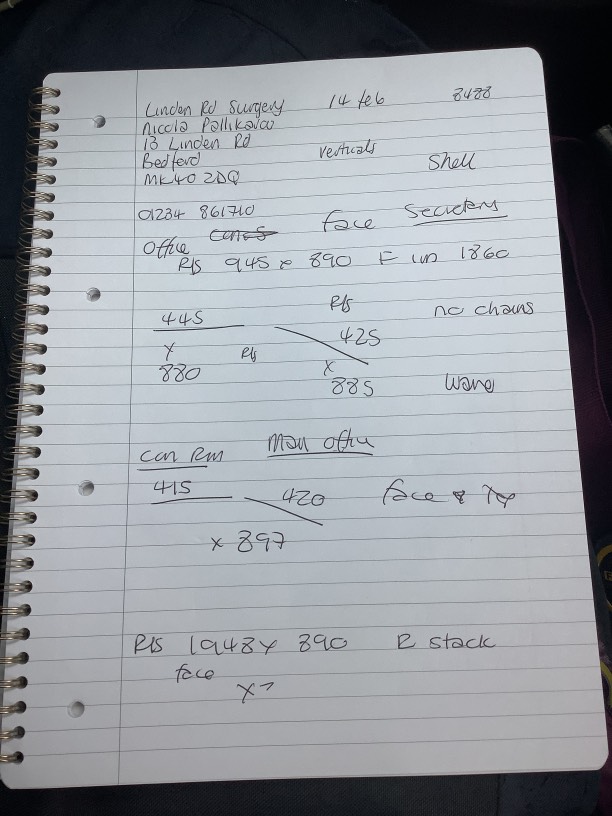 Linden Rd Surgery 14 feb 8488
Nicola
13 Linden Rd
Bedford verticals Shell
MK40 2DQ
01234 861710
Office face Secretary
Rls 945 x 890 F un 1860
445 Rls no chains
x Rls 425
880 x
885 Wand
Con Rm Main office
415 420 face
x 897
Rls 1948 x 890 R stack
face
x 2